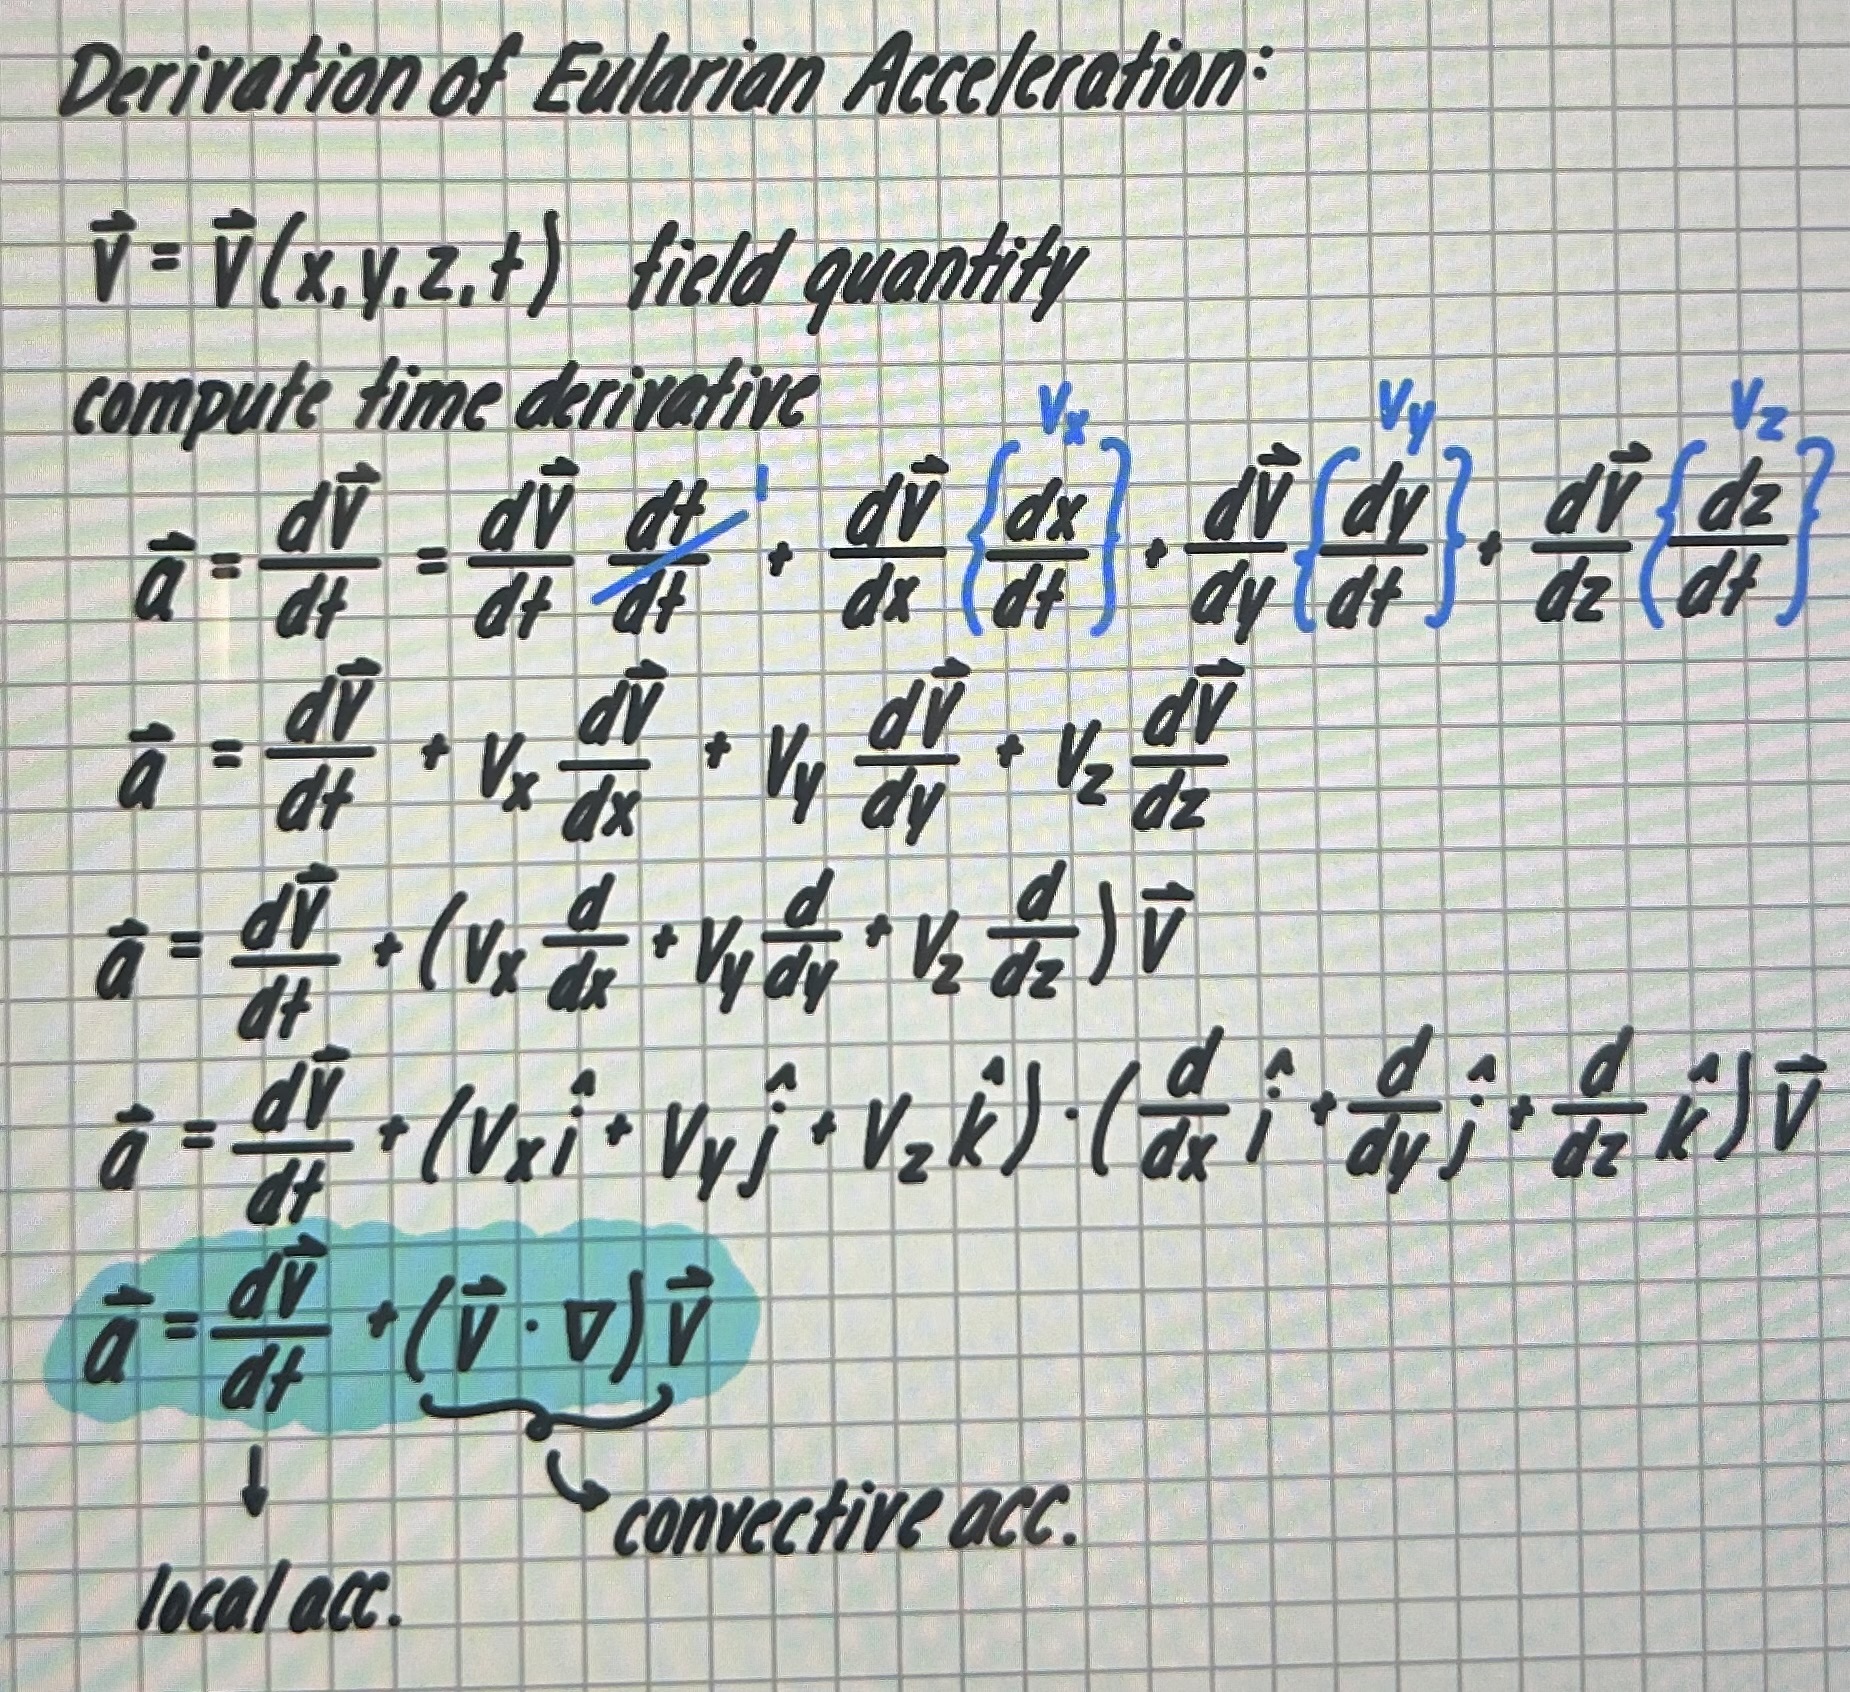 Derivation of Eularian Acceleration:
v⃗ = v⃗(x,y,z,t) field quantity
compute time derivative
a⃗ = dv⃗/dt = dv⃗/dt dt/dt 1 + dv⃗/dx {dx/dt} Vx + dv⃗/dy {dy/dt} Vy + dv⃗/dz {dz/dt} Vz
a⃗ = dv⃗/dt + Vx dv⃗/dx + Vy dv⃗/dy + Vz dv⃗/dz
a⃗ = dv⃗/dt + (Vx d/dx + Vy d/dy + Vz d/dz) v⃗
a⃗ = dv⃗/dt + (Vx î + Vy ĵ + Vz k̂) · (d/dx î + d/dy ĵ + d/dz k̂) v⃗
a⃗ = dv⃗/dt + (v⃗ · ∇) v⃗
convective acc.
local acc.